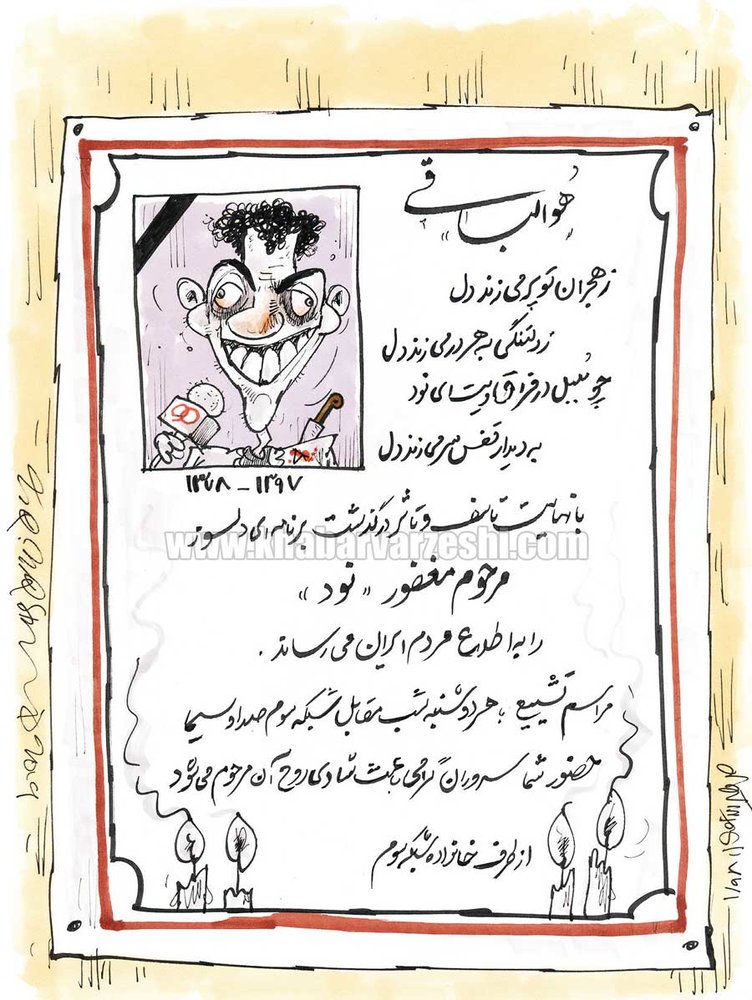 هوالباقی
ز هجران تو پر می زند دل
ز دلتنگی به هر در می زند دل
چو بلبل در فراقت ای نود
به دیدار قفس سر می زند دل
90
۱۳۷۸ - ۱۳۹۷
با نهایت تاسف و تاثر درگذشت برنامه ای دلسوز
www.khabarvarzeshi.com
مرحوم مغفور «نود»
را به اطلاع مردم ایران می رساند.
مراسم تشییع: هر دوشنبه شب مقابل شبکه سوم صدا و سیما
حضور شما سروران گرامی باعث شادی روح آن مرحوم می شود
از طرف خانواده شبکه سوم